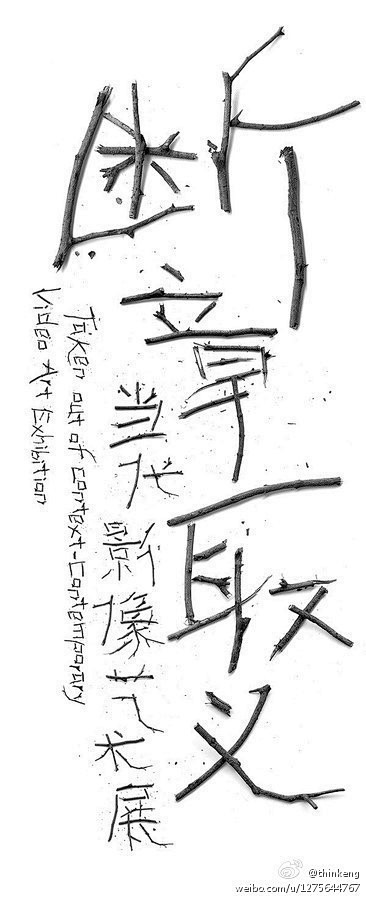 断章取义
当代影像艺术展
Taken out of context-Contemporary
Video Art Exhibition
@thinkeng
weibo.com/u/1275644767